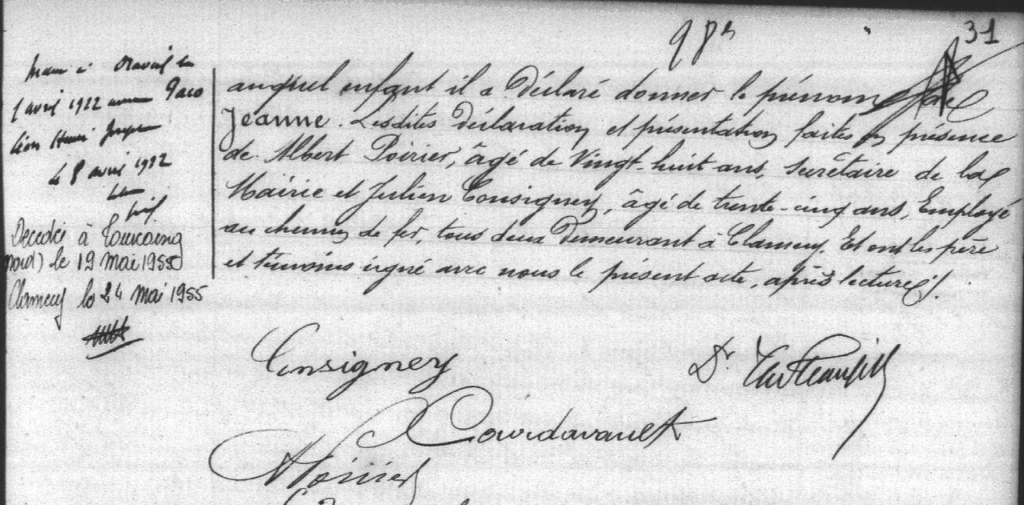 31
auquel enfant il a déclaré donner le prénom de
Jeanne. Lesdites déclaration et présentation faites en présence
de Albert Poirier, âgé de vingt-huit ans, Secrétaire de la
Mairie et Julien Consigney, âgé de trente-cinq ans, Employé
au chemin de fer, tous deux demeurant à Clamecy. Et ont les père
et témoins signé avec nous le présent acte, après lecture.
avril 1922
le 8 avril 1922
Décédée à Tourcoing
(nord) le 19 mai 1955
Clamecy le 24 mai 1955
Consigney
Dr
Courdavault
Poirier